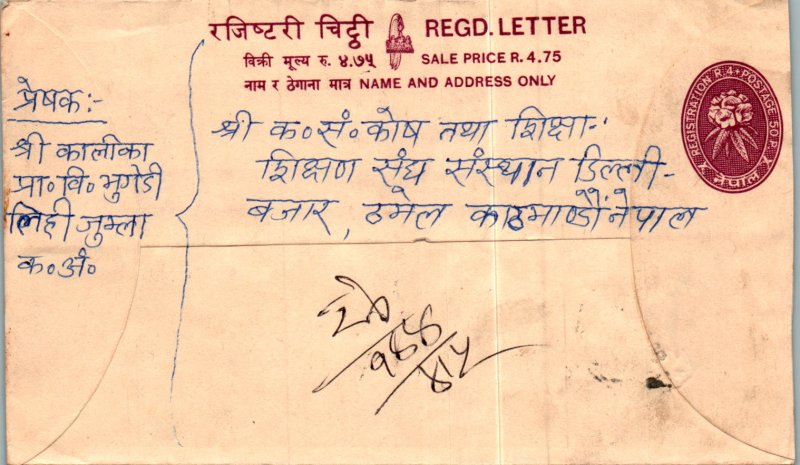 रजिष्टरी चिट्ठी REGD. LETTER
बिक्री मूल्य रु. ४.७५ SALE PRICE R. 4.75
नाम र ठेगाना मात्र NAME AND ADDRESS ONLY
REGISTRATION R.4+POSTAGE 50 P.
नेपाल
प्रेषक:-
श्री कालीका
प्रा॰वि॰भुगेडी
लिही जुम्ला
क॰अं॰
श्री क॰सं॰कोष तथा शिक्षा-
शिक्षण संघ संस्थान डिल्ली-
बजार, ठमेल काठमाण्डौं नेपाल
१४४
४५